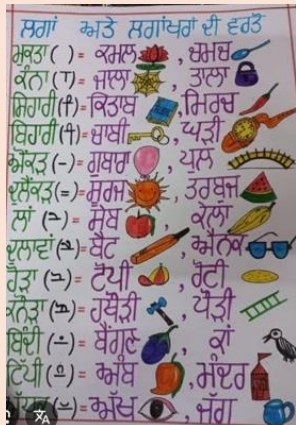 ਲਗਾਂ ਅਤੇ ਲਗਾਂਖਰਾਂ ਦੀ ਵਰਤੋਂ
ਮੁਕਤਾ ( ) = ਕਮਲ , ਚਮਚ
ਕੰਨਾ (ਾ) = ਜਾਲਾ , ਤਾਲਾ
ਸਿਹਾਰੀ (ਿ) = ਕਿਤਾਬ , ਮਿਰਚ
ਬਿਹਾਰੀ (ੀ) = ਚਾਬੀ , ਘੜੀ
ਔਂਕੜ (ੁ) = ਗੁਬਾਰਾ , ਪੁਲ
ਦੁਲੈਂਕੜ (ੂ) = ਸੂਰਜ , ਤਰਬੂਜ਼
ਲਾਂ (ੇ) = ਸੇਬ , ਕੇਲਾ
ਦੁਲਾਵਾਂ (ੈ) = ਬੈਟ , ਐਨਕ
ਹੋੜਾ (ੋ) = ਟੋਪੀ , ਰੋਟੀ
ਕਨੌੜਾ (ੌ) = ਹਥੌੜੀ , ਪੌੜੀ
ਬਿੰਦੀ (ਂ) = ਬੈਂਗਣ , ਕਾਂ
ਟਿੱਪੀ (ੰ) = ਅੰਬ , ਮੰਦਰ
(ੱ) = ਅੱਖ , ਜੱਗ